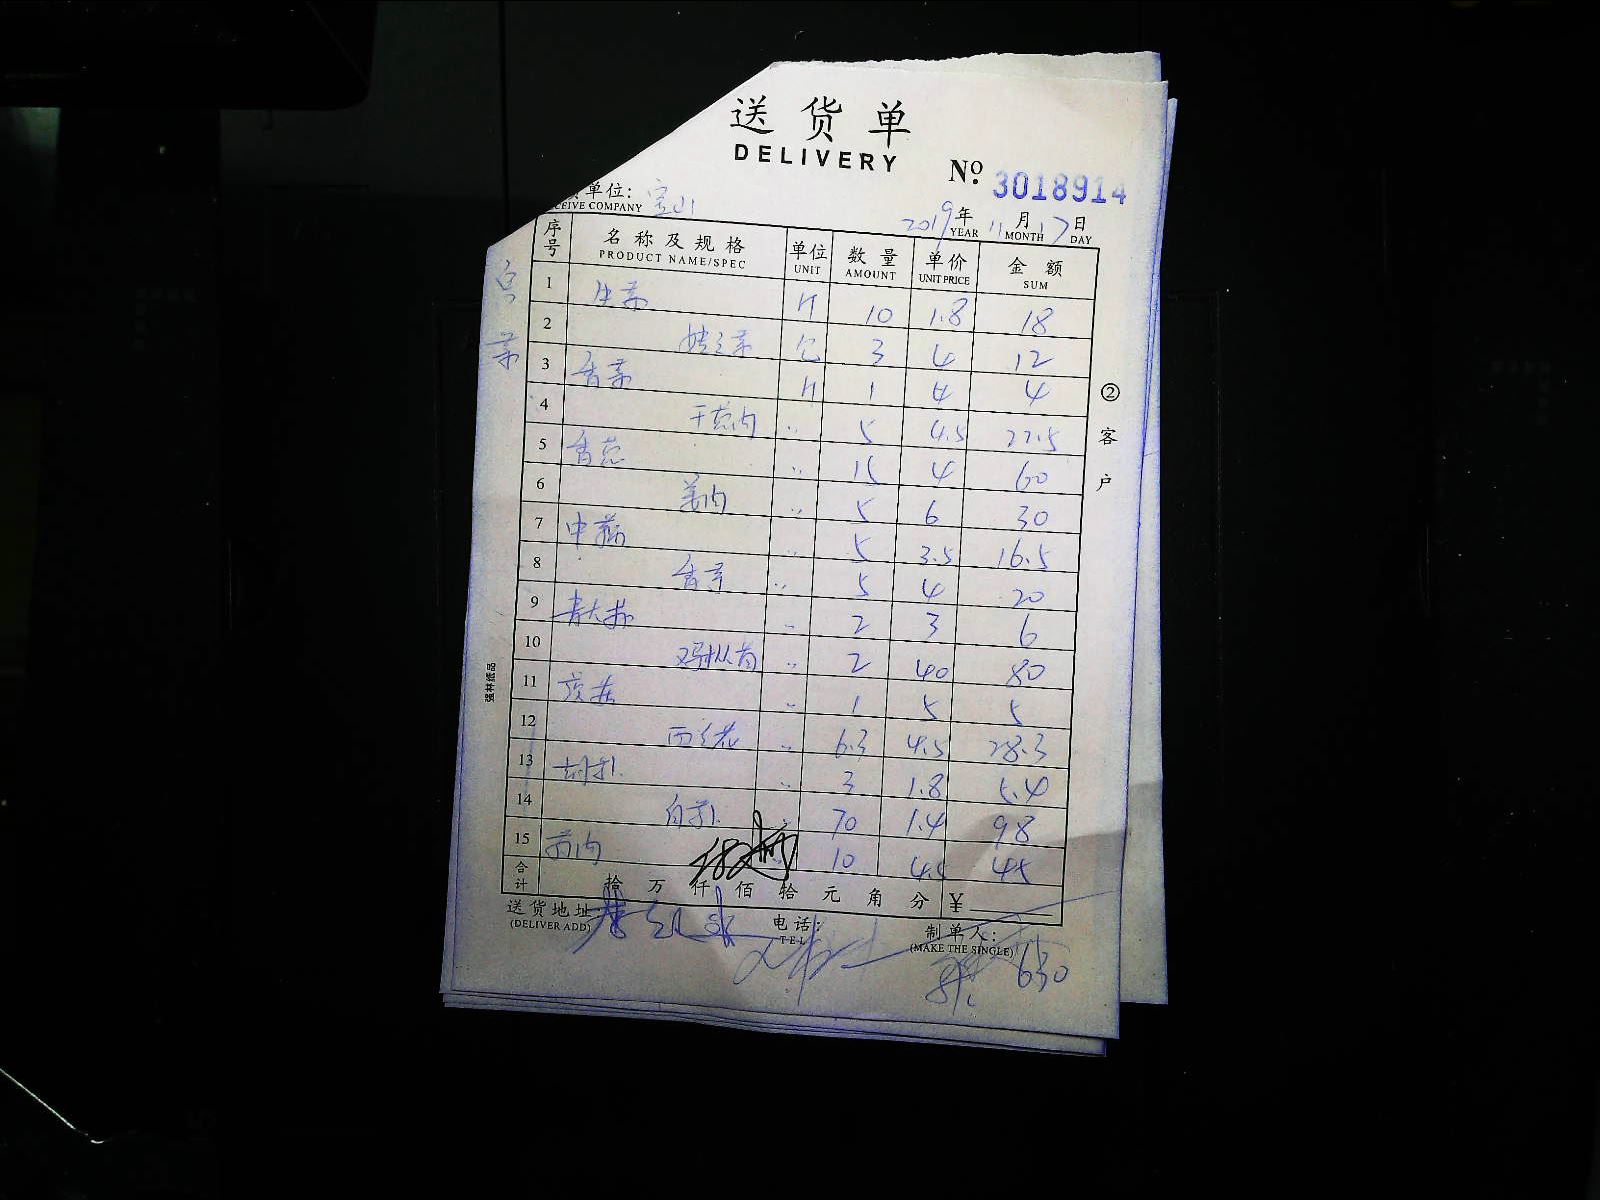 送货单
DELIVERY
No. 3018914
单位: 宝山
CEIVE COMPANY
2019年 11月 17日
YEAR MONTH DAY
序号 名称及规格 单位 数量 单价 金额
PRODUCT NAME/SPEC UNIT AMOUNT UNIT PRICE SUM
1 生菜 斤 10 1.8 18
2 娃之菜 包 3 4 12
3 香菜 斤 1 4 4
4 干葱肉 〃 5 4.5 22.5
5 香葱 〃 15 4 60
6 姜肉 〃 5 6 30
7 中芹 〃 5 3.5 16.5
8 香芹 〃 5 4 20
9 青大 〃 2 3 6
10 鸡枞菌 〃 2 40 80
11 〃 1 5 5
12 西兰花 〃 6.3 4.5 28.3
13 胡卜 〃 3 1.8 5.4
14 白萝卜 〃 70 1.4 98
15 肉 〃 10 4.5 45
合计 拾 万 仟 佰 拾 元 角 分 ¥
送货地址: 电话: 制单人:
(DELIVER ADD) TEL (MAKE THE SINGLE)
630
②客户
强林纸品